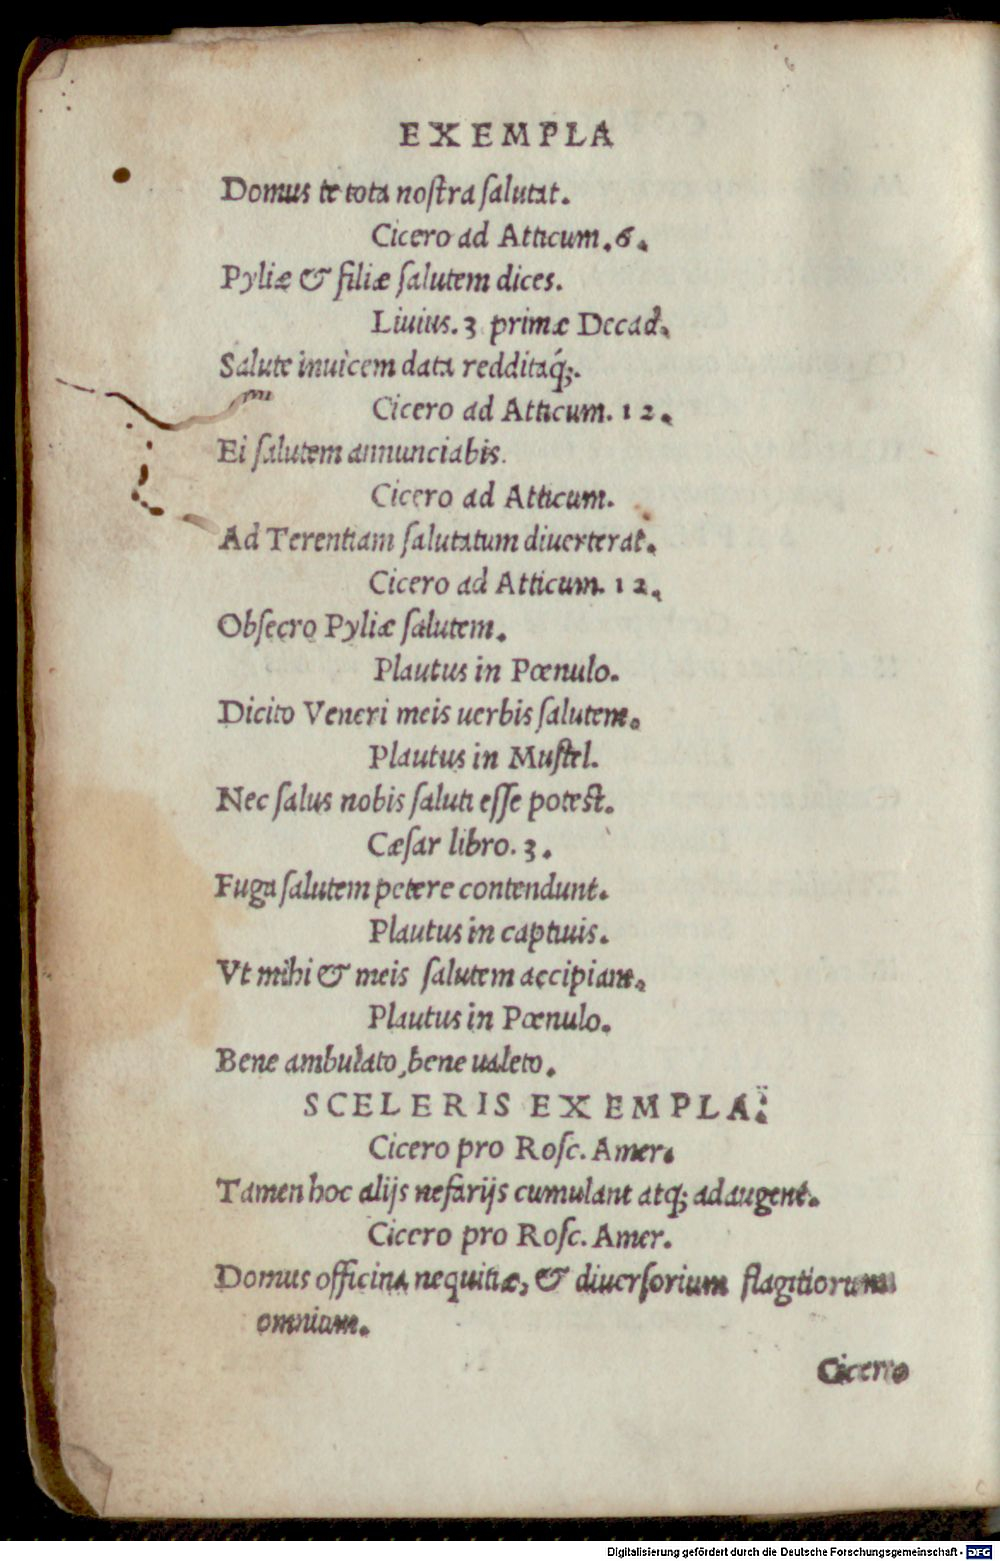 EXEMPLA
Domus te tota nostra salutat.
Cicero ad Atticum .6.
Pyliæ & filiæ salutem dices.
Liuius. 3 primæ Decad.
Salute inuicem data redditaq́;.
Cicero ad Atticum. 12.
Ei salutem annunciabis.
Cicero ad Atticum.
Ad Terentiam salutatum diuerterat.
Cicero ad Atticum. 12.
Obsecro Pyliæ salutem.
Plautus in Pœnulo.
Dicito Veneri meis uerbis salutem.
Plautus in Mustel.
Nec salus nobis saluti esse potest.
Cæsar libro. 3.
Fuga salutem petere contendunt.
Plautus in captiuis.
Vt mihi & meis salutem accipiant.
Plautus in Pœnulo.
Bene ambulato, bene ualeto.
SCELERIS EXEMPLA:
Cicero pro Rosc. Amer.
Tamen hoc alijs nefarijs cumulant atq; adaugent.
Cicero pro Rosc. Amer.
Domus officina nequitiæ, & diuersorium flagitiorum
omnium.
Cicero
Digitalisierung gefördert durch die Deutsche Forschungsgemeinschaft - DFG